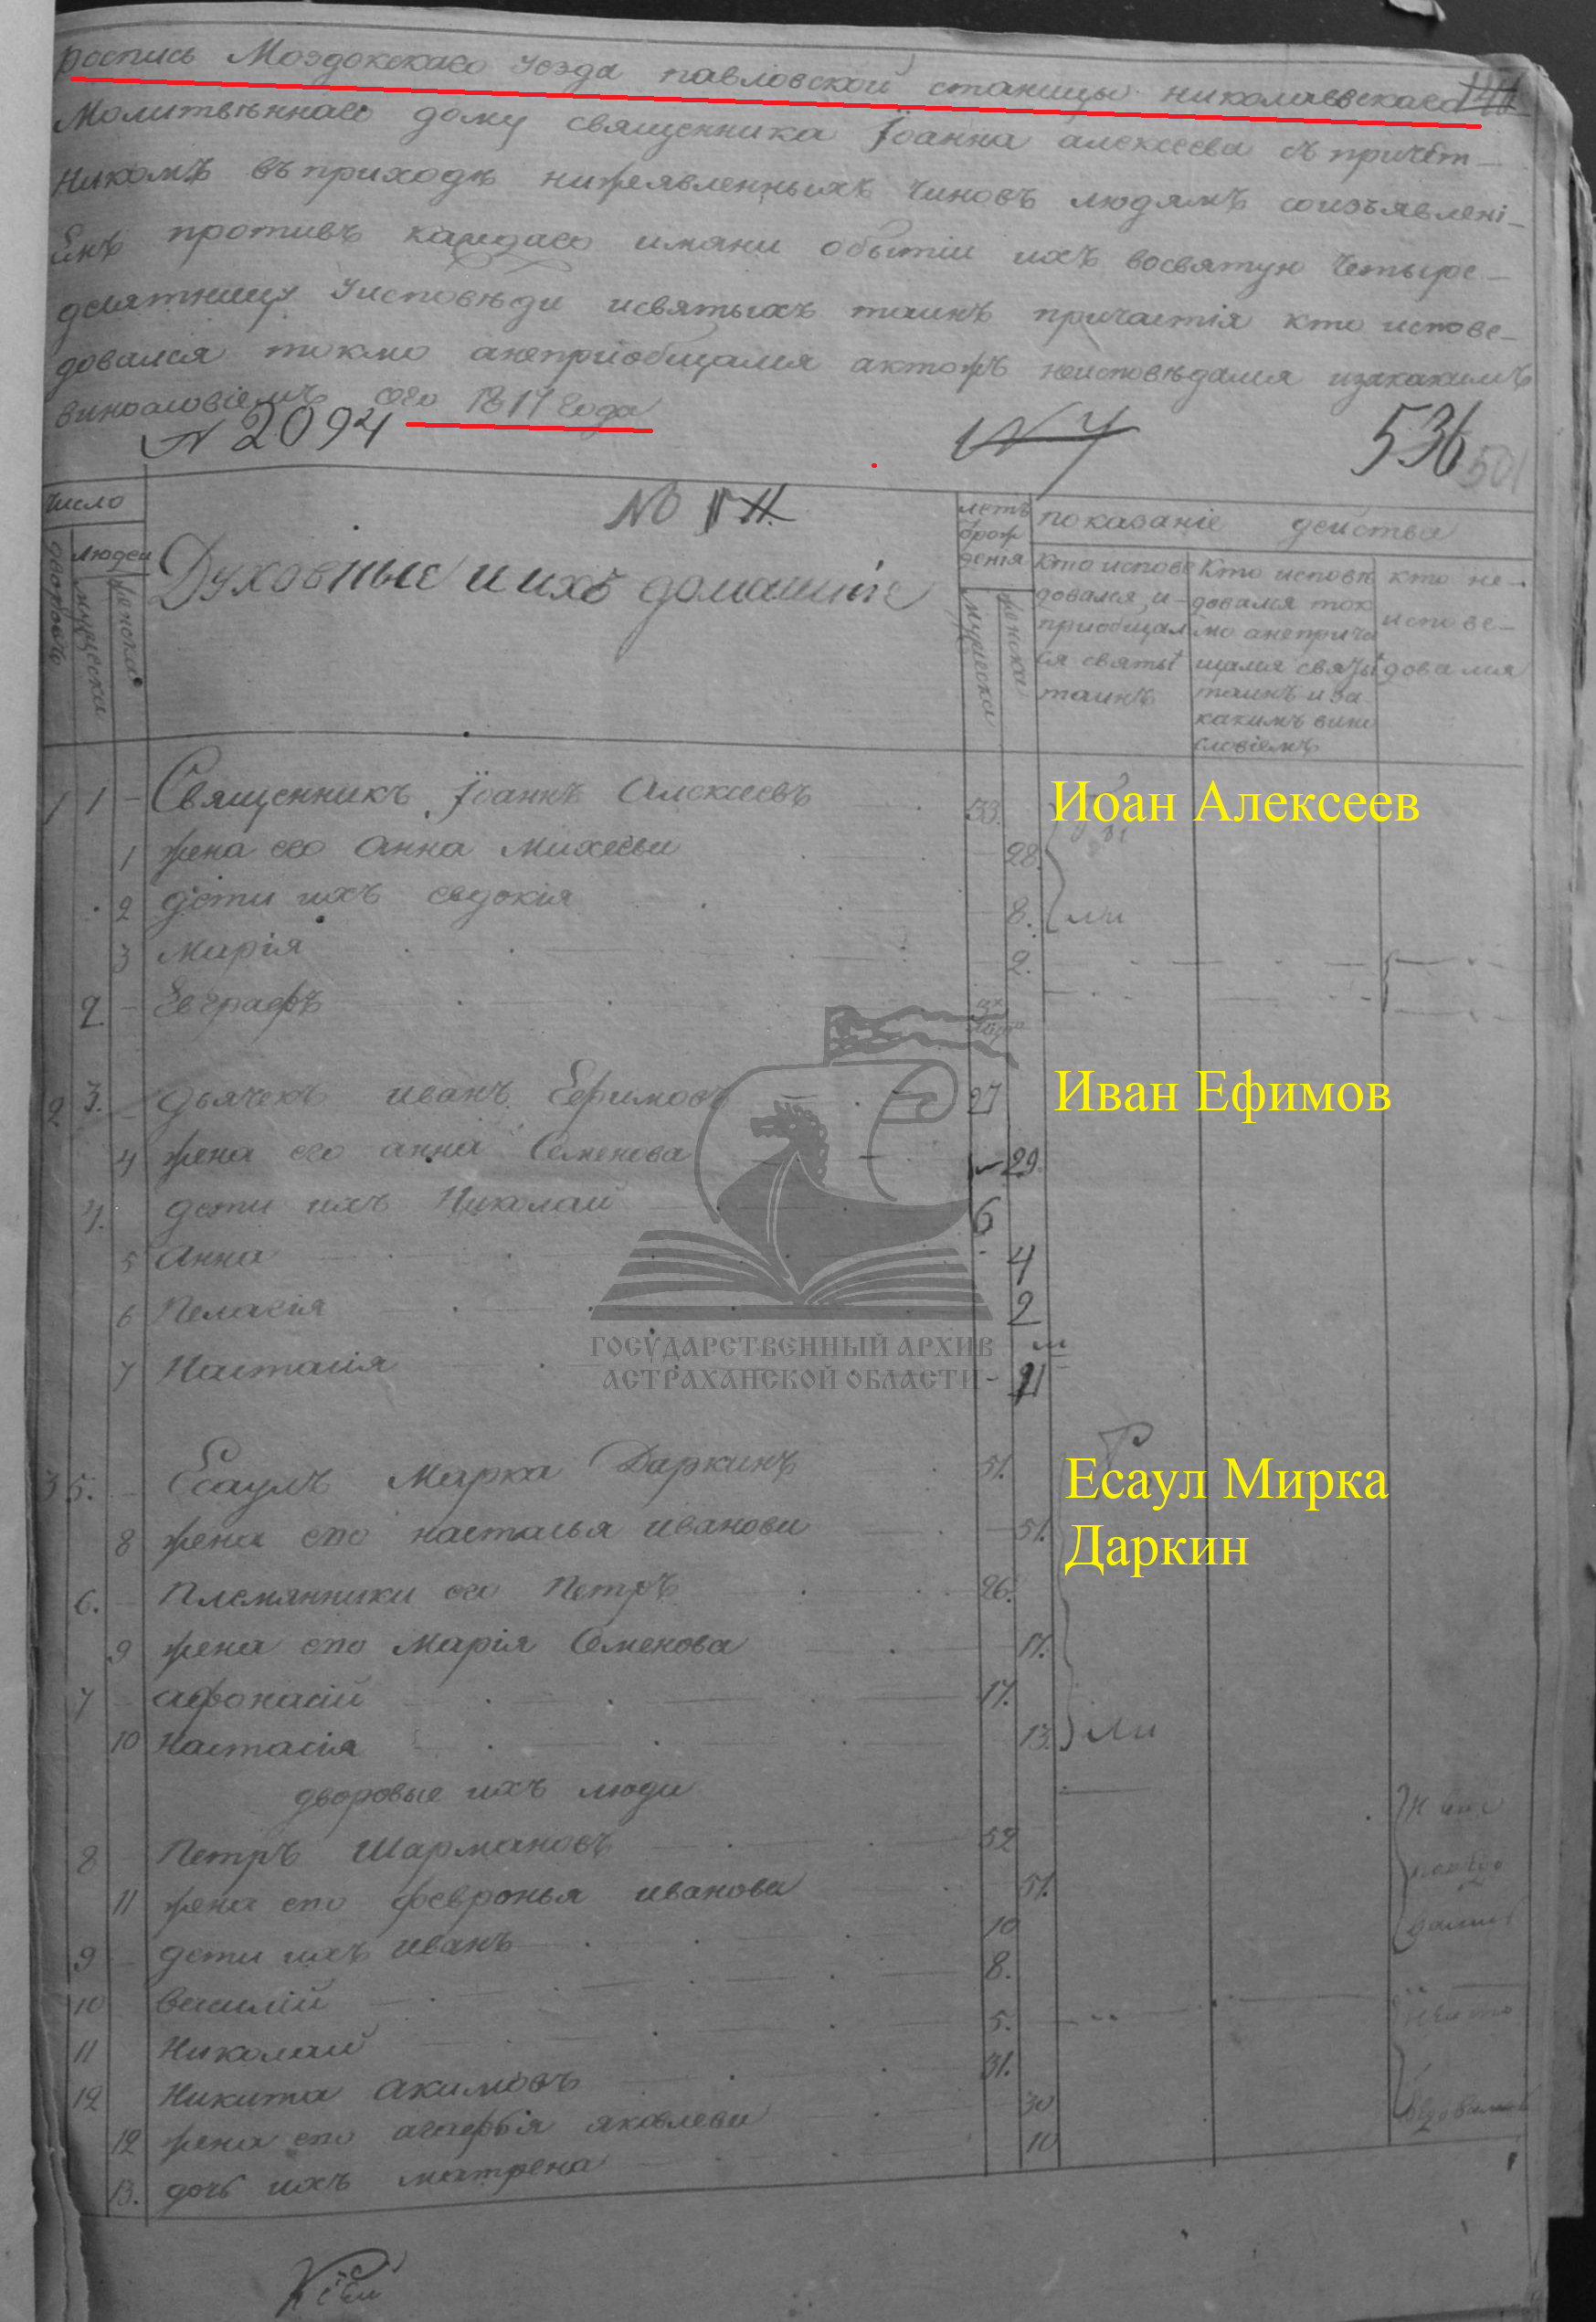 роспись Моздокскаго уезда павловской станицы николаевскаго
Молитвеннаго дому священника Іоанна алексеева съ причет-
никомъ въ приходѣ нижеявленныхъ чиновъ людямъ соизъявлені-
Емъ противъ каждаго имяни обытіи ихъ восвятую четыре-
десятницу уисповѣди исвятыхъ таинъ причастія кто испове-
довался токмо анепріобщался актожъ неисповѣдался изакакимъ
винословіемъ сего 1817 года
N 2094
N 7
536
501
№
число
дворовъ
людей
мужеска
женска
Духовные и ихъ домашніе
летъ
отрож
денія
мужеска
женска
показаніе действа
Кто испове
довался и-
пріобщал
ся святы
таинъ
Кто исповѣ
довался ток
мо анеприча
щался святы
таинъ и за
какимъ вино
словіемъ
кто не-
испове-
довался
1 1 - Священникъ Іоаннъ Алексеевъ 33.
Иоан Алексеев
1 жена его Анна Михеева 28.
2 дети ихъ евдокія 8.
ли
3 Марія 2.
2. - Евграфъ
2 3. - дьячекъ иванъ Ефимовъ 27
Иван Ефимов
4 жена его анна Семенова 29.
4. дети ихъ Николай 6
5 Анна 4
6 Пелагія 2
7 Настасія
ГОСУДАРСТВЕННЫЙ АРХИВ
АСТРАХАНСКОЙ ОБЛАСТИ
3 5. - Есаулъ Марка Даркинъ 51.
Есаул Мирка
Даркин
8 жена его настасья иванова 51.
6. - Племянники его Петръ 26.
9 жена его Марія Семенова 17.
7 - афонасій 17.
10 Настасія 13.
ли
дворовые ихъ люди
8 - Петръ Шармановъ 52
11 жена его февронья иванова 51.
9 - дети ихъ иванъ 10
10 Василій 8.
11 Николай 5.
12 Никита акимовъ 31.
12 жена его агафья яковлева 30
13. дочь ихъ матрена 10